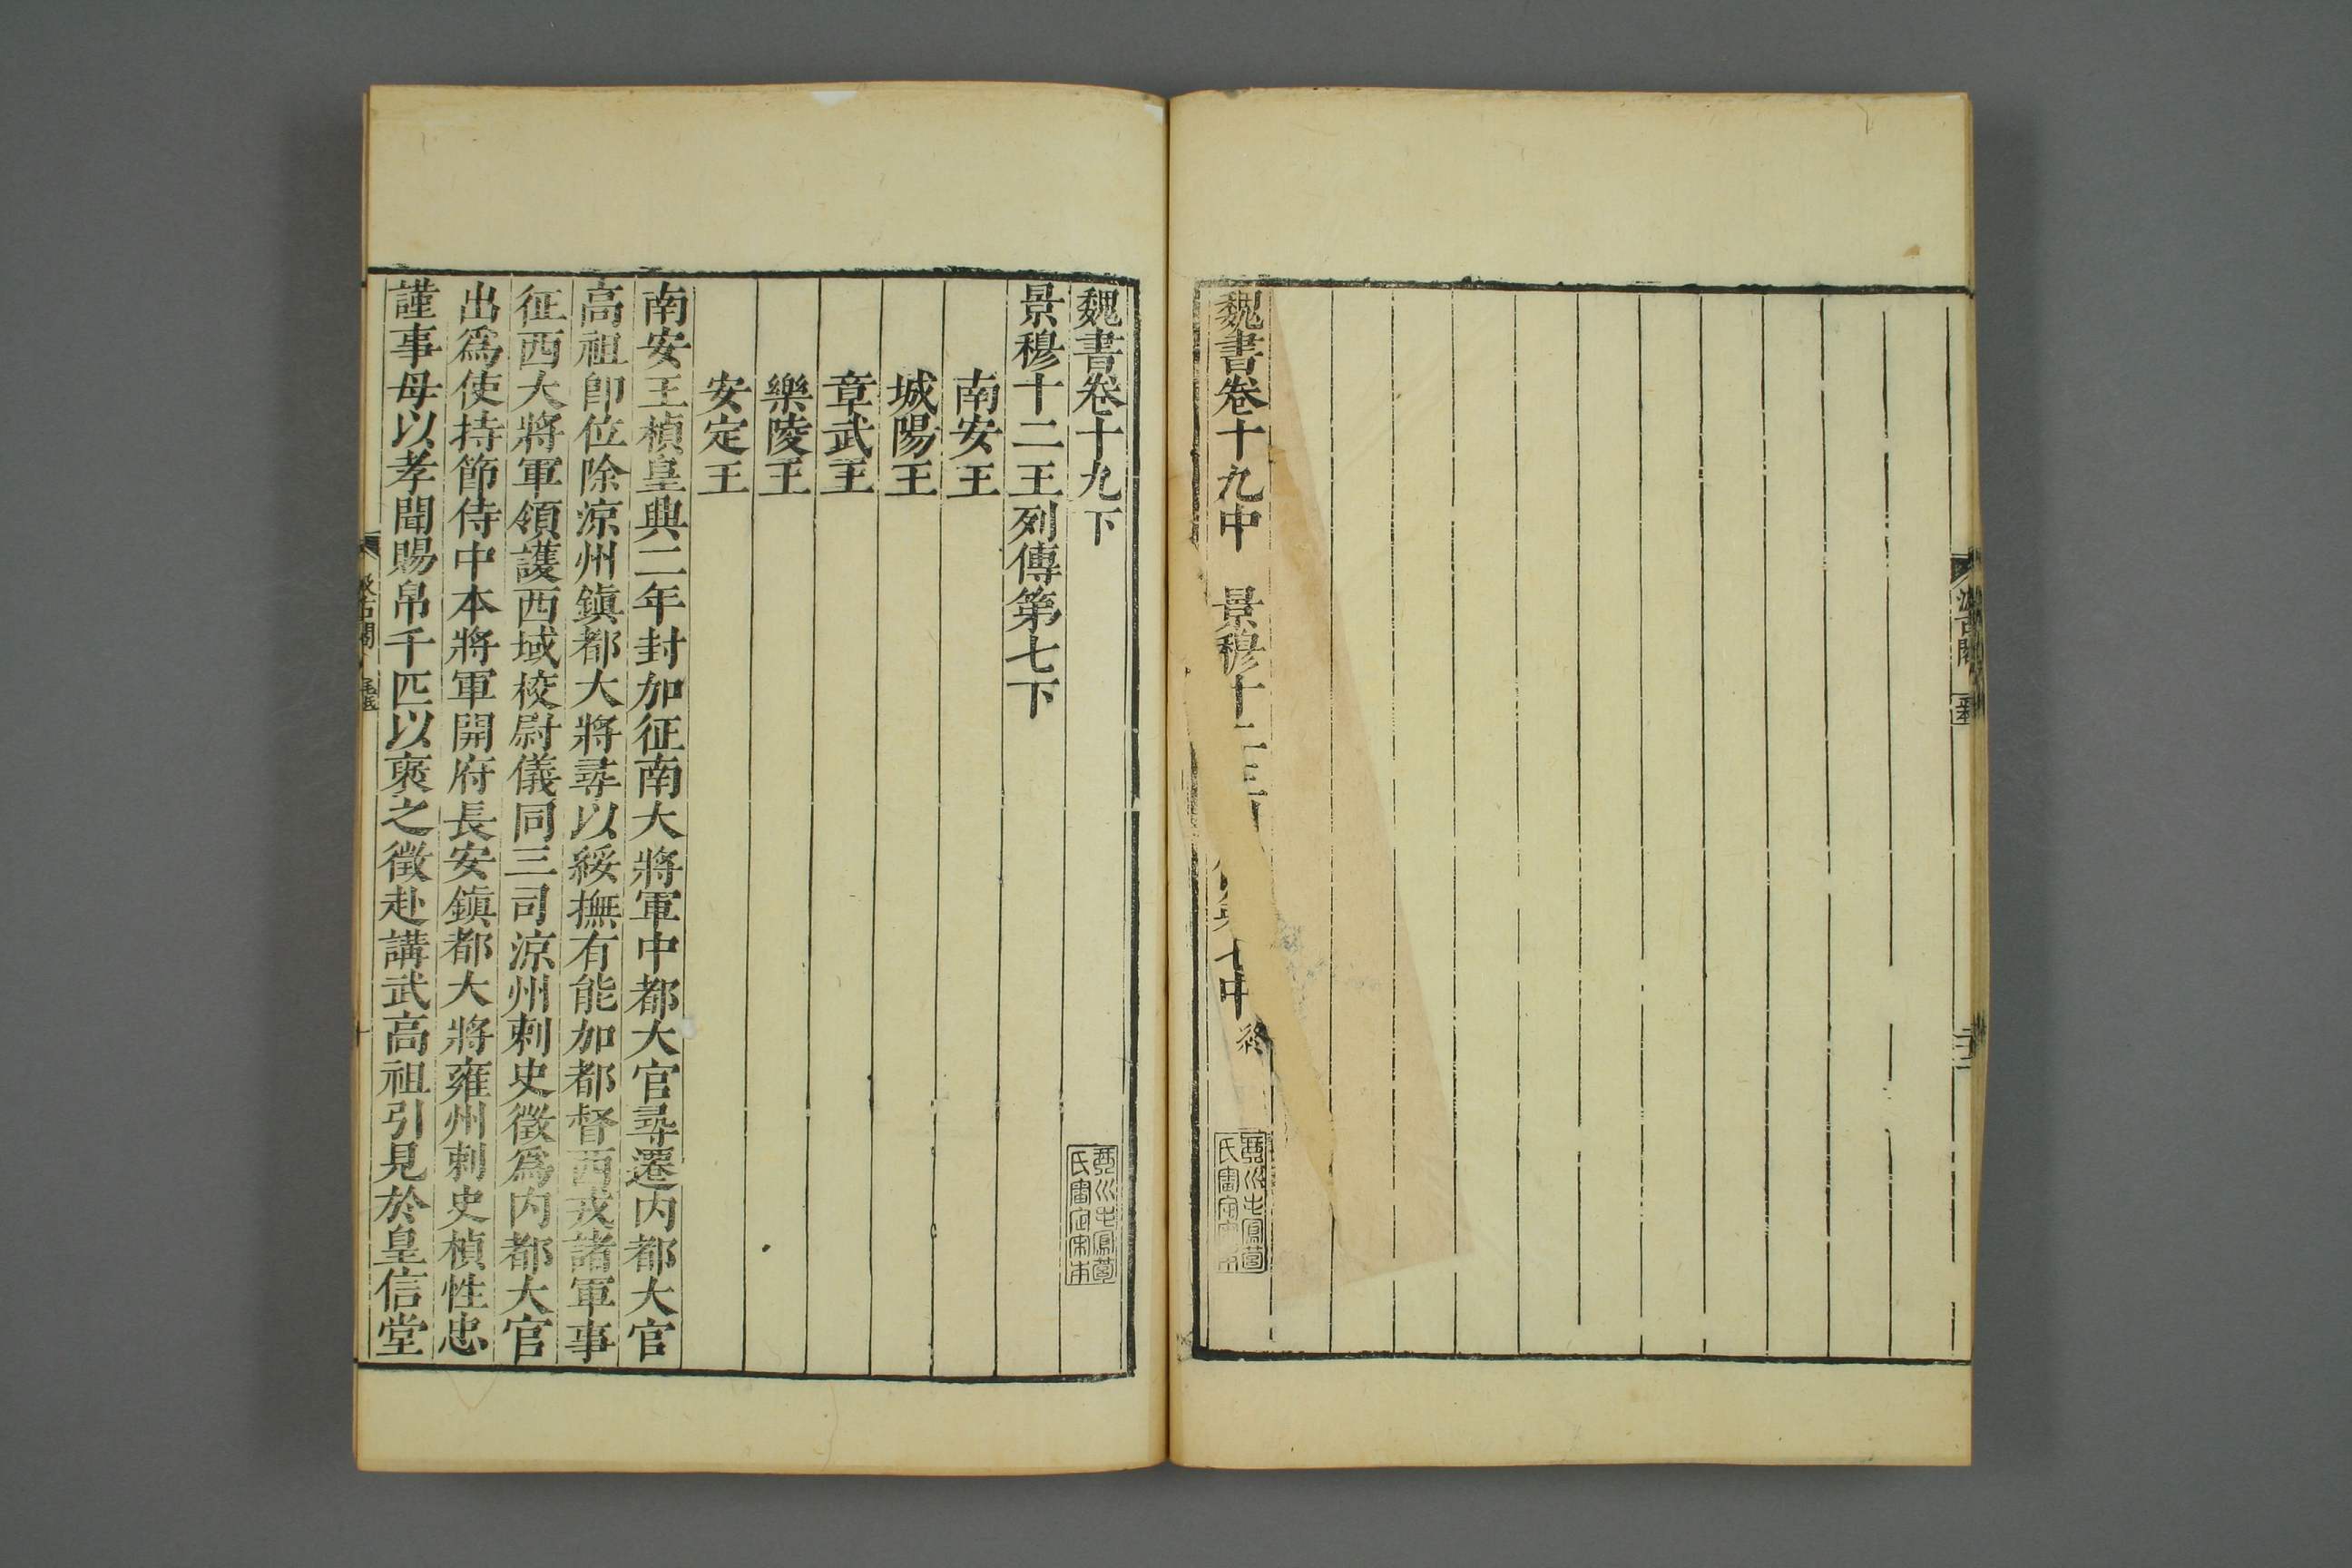 魏書卷十九中 景穆十二王 七中 終
魏書卷十九下
景穆十二王列傳第七下
南安王
城陽王
章武王
樂陵王
安定王
南安王楨皇興二年封加征南大將軍中都大官尋遷内都大官
高祖卽位除涼州鎮都大將尋以綏撫有能加都督西戎諸軍事
征西大將軍領護西域校尉儀同三司涼州刺史徵爲内都大官
出爲使持節侍中本將軍開府長安鎮都大將雍州刺史楨性忠
謹事母以孝聞賜帛千匹以襃之徵赴講武高祖引見於皇信堂
汲古閣